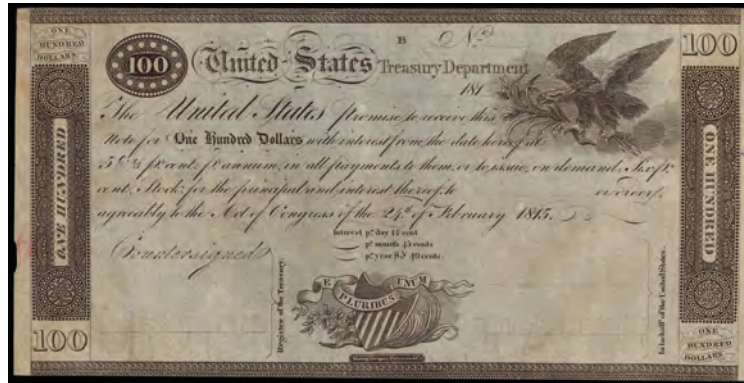 ONE
HUNDRED
DOLLARS
B
No.
100
100
United States Treasury Department
181
The United States promise to receive this
Note for One Hundred Dollars with interest from the date hereof at
5 2/5 pr cent. pr annum, in all payments to them, or to issue, on demand, Six pr.
cent. Stock for the principal and interest thereof, to or order,
agreeably to the Act of Congress of the 24th of February 1815.
Interest pr. day 1½ cent
pr. month 45 cents
pr. year $5 40 cents.
Countersigned
ONE HUNDRED
ONE HUNDRED
E PLURIBUS UNUM
Register of the Treasury.
In behalf of the United States.
100
ONE
HUNDRED
DOLLARS